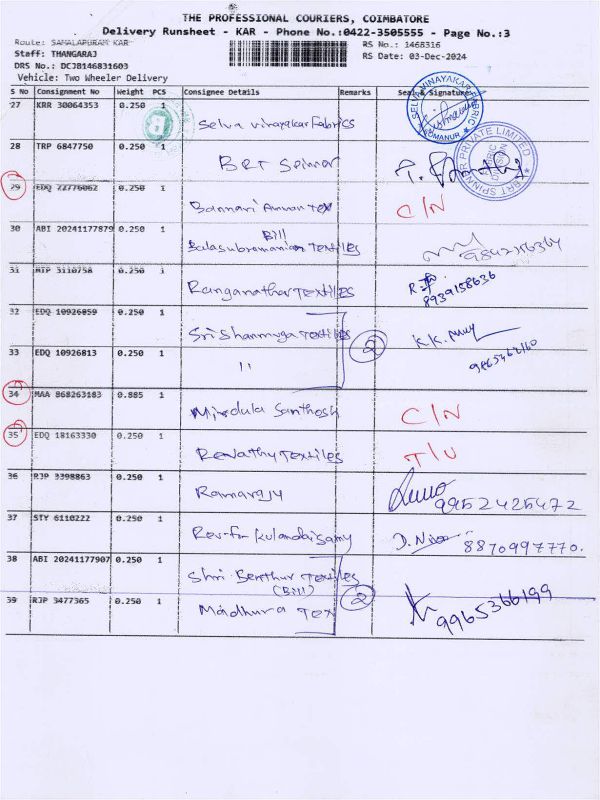 THE PROFESSIONAL COURIERS, COIMBATORE
Delivery Runsheet - KAR - Phone No.:0422-3505555 - Page No.:3
Route: SAMALAPURAM KAR
RS No.: 1468316
Staff: THANGARAJ
RS Date: 03-Dec-2024
DRS No.: DCJB146831603
Vehicle: Two Wheeler Delivery
S No Consignment No Weight PCS Consignee Details Remarks Seal & Signature
27 KRR 30064353 0.250 1 Selva vinayakar Fabrics
28 TRP 6847750 0.250 1 BRT Spinner
29 EDQ 72776062 0.250 1 Bannari Amman Tex C/N
30 ABI 20241177879 0.250 1 Bill
Balasubramanian Textiles
31 RJP 3110758 0.250 1 Ranganathar Textiles 8939158636
32 EDQ 10926059 0.250 1 Sri Shanmuga Textiles 2 K.K.
33 EDQ 10926813 0.250 1 " 9865362160
34 MAA 868263183 0.885 1 Mirdula Santhosh C/N
35 EDQ 18163330 0.250 1 Revathy Textiles T/U
36 RJP 3398863 0.250 1 Ramaraju 9952425472
37 STY 6110222 0.250 1 Rev-Fr Kulandaisamy 8870997770.
38 ABI 20241177907 0.250 1 Shri Textiles
(Bill) 2
39 RJP 3477365 0.250 1 Madhura Tex 9965366199